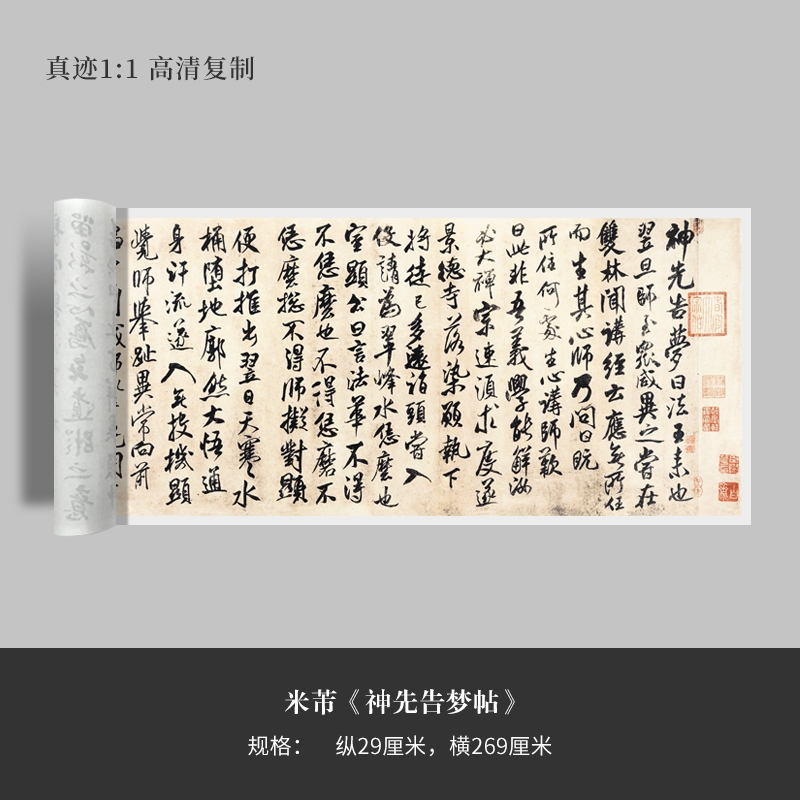 真迹1:1 高清复制
神先告夢曰法王来也
翌旦師至衆咸異之嘗在
雙林聞講經云應無所住
而生其心師乃問曰既
所住何處生心講師歎
曰此非吾義學能解汝
大禅宗速須求度遂
景德寺落染願執下
将徒已多遠詣頭嘗入
俊請當翠峰水恁麽也
室顯公曰言法華不得
不恁麽也不得恁麽不
恁麽捴不得師擬對顯
便打推出翌日天寒水
桶堕地廓然大悟通
身汗流遂入無投機顯
覺師舉趾異常向前
米芾《神先告梦帖》
规格： 纵29厘米，横269厘米